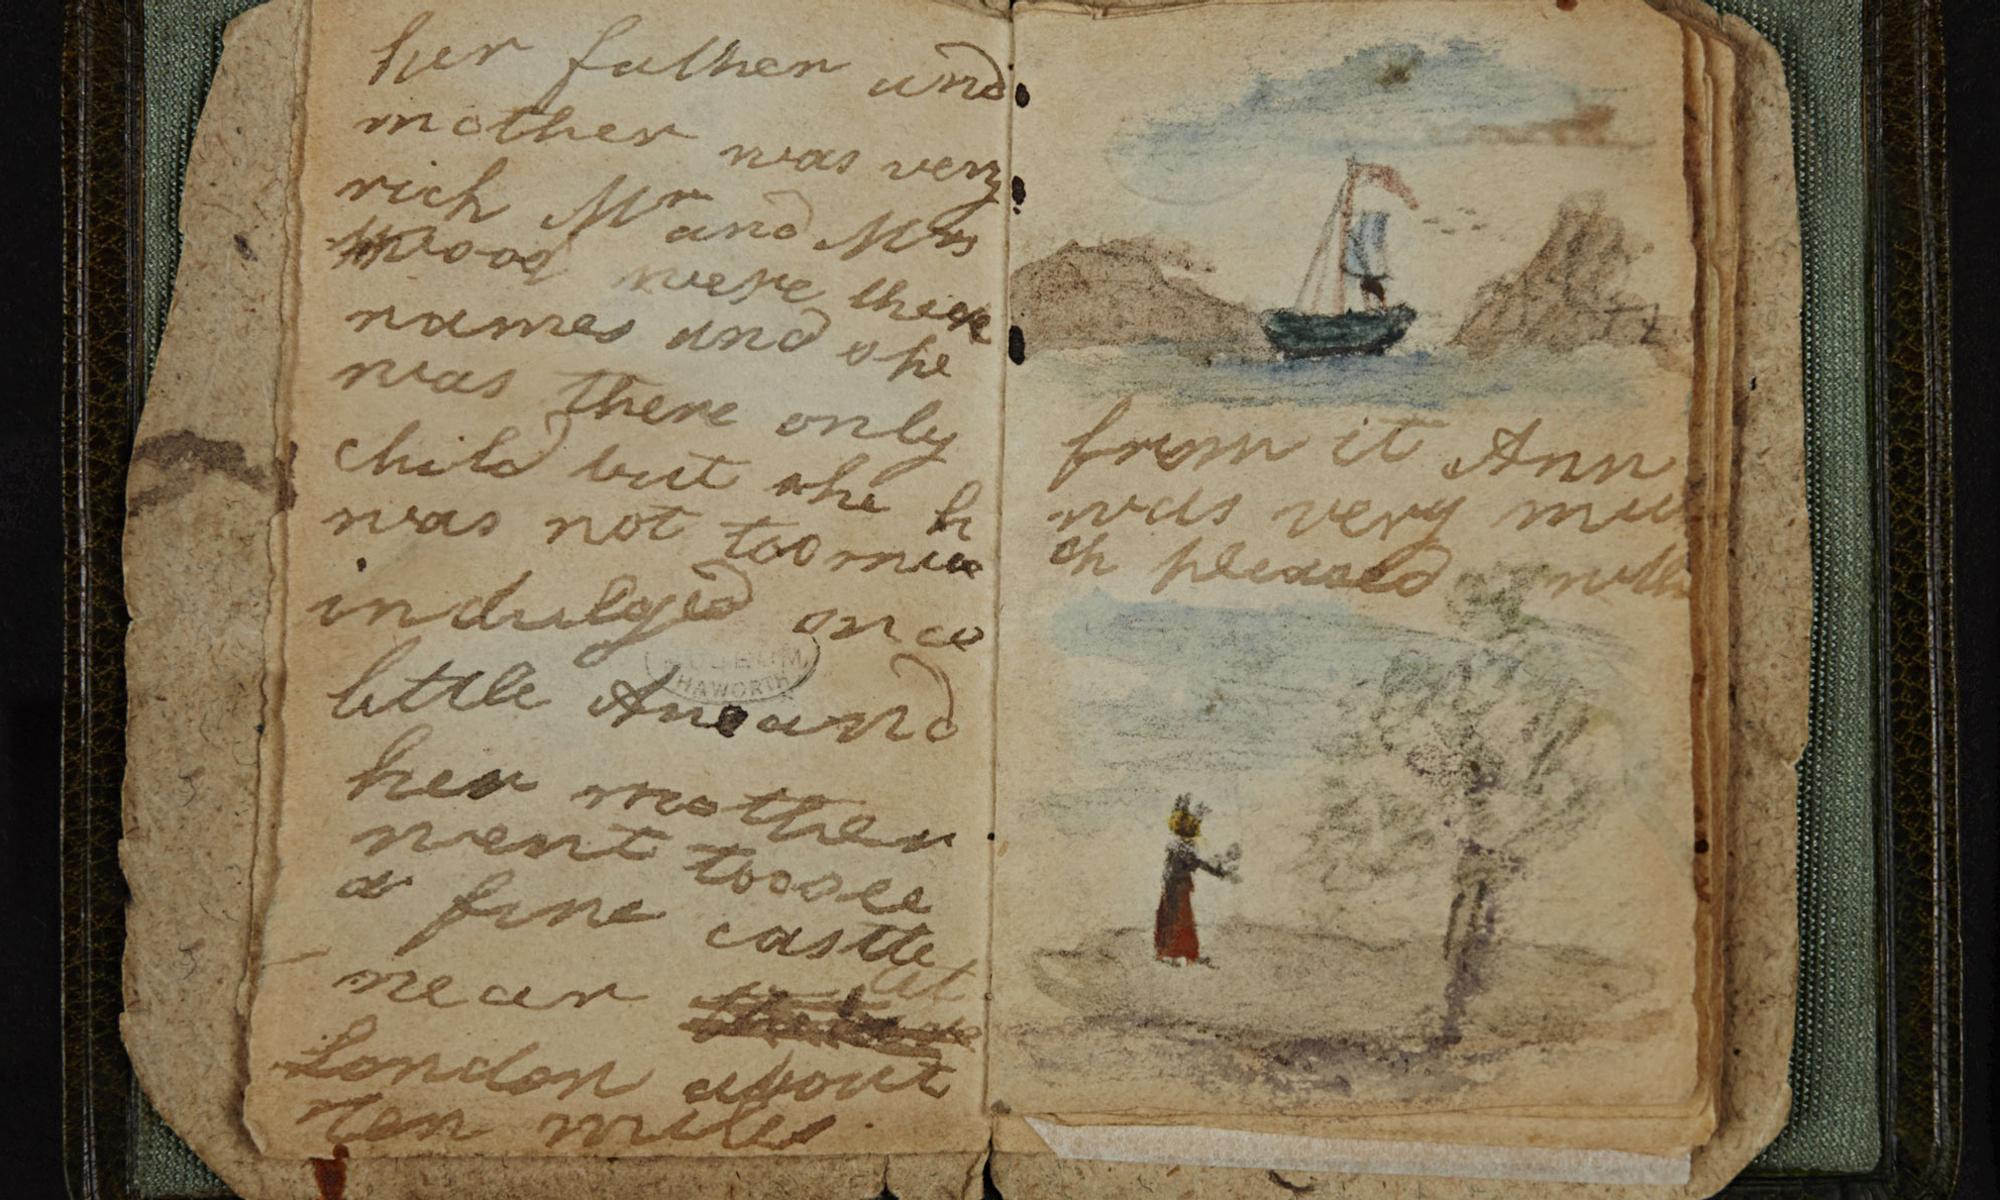 her father and
mother was very
rich Mr and Mrs
Wood were there
names and she
was there only
child but she h
was not too muc
indulged once
little Ane and
her mother
went too see
a fine castle
near at
London about
ten miles.
MUSEUM
HAWORTH
from it Ann
was very mu
ch pleased with